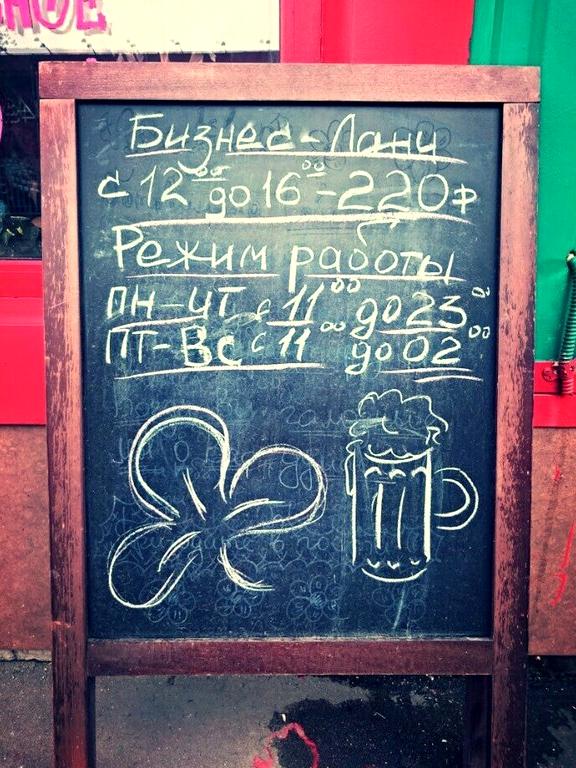 НОЕ
Бизнес-Ланч
с 12⁰⁰ до 16⁰⁰ - 220р
Режим работы
ПН-ЧТ с 11⁰⁰ до 23⁰⁰
ПТ-Вс с 11⁰⁰ до 02⁰⁰